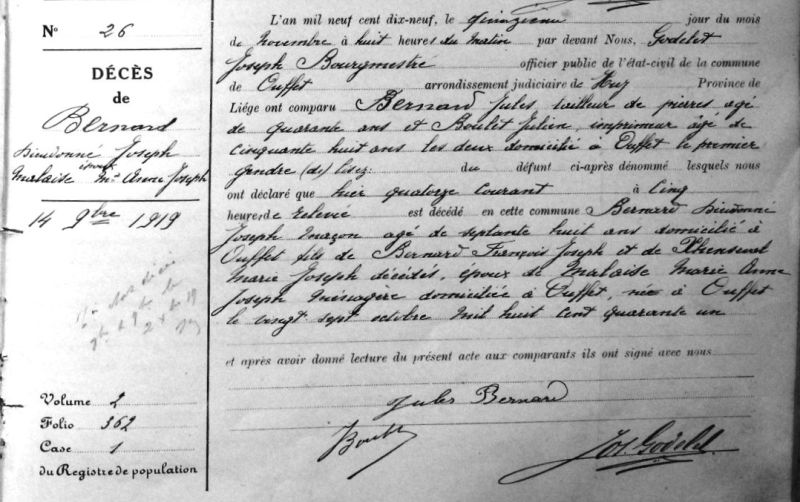 N° 26
DÉCÈS
de
Bernard
Dieudonné Joseph
époux
Malaise Mie Anne Joseph
14 9bre 1919
Volume 2
Folio 362
Case 1
du Registre de population
L'an mil neuf cent dix-neuf, le quinzième jour du mois
de Novembre à huit heures du matin par devant Nous, Godelet
Joseph Bourgmestre officier public de l'état-civil de la commune
de Ouffet arrondissement judiciaire de Huy Province de
Liége ont comparu Bernard Jules, tailleur de pierres agé
de quarante ans et Boulet Julien, imprimeur âgé de
cinquante huit ans les deux domicilié à Ouffet le premier
gendre (de) lisez: du défunt ci-après dénommé lesquels nous
ont déclaré que hier quatorze courant à cinq
heures de relevée est décédé en cette commune Bernard Dieudonné
Joseph Maçon agé de septante huit ans domicilié à
Ouffet fils de Bernard François Joseph et de
Marie Joseph décédés, époux de Malaise Marie Anne
Joseph Ménagère domiciliée à Ouffet, née à Ouffet
le vingt sept octobre mil huit cent quarante un
et après avoir donné lecture du présent acte aux comparants ils ont signé avec nous
Jules Bernard
Boulet
Jos. Godelet